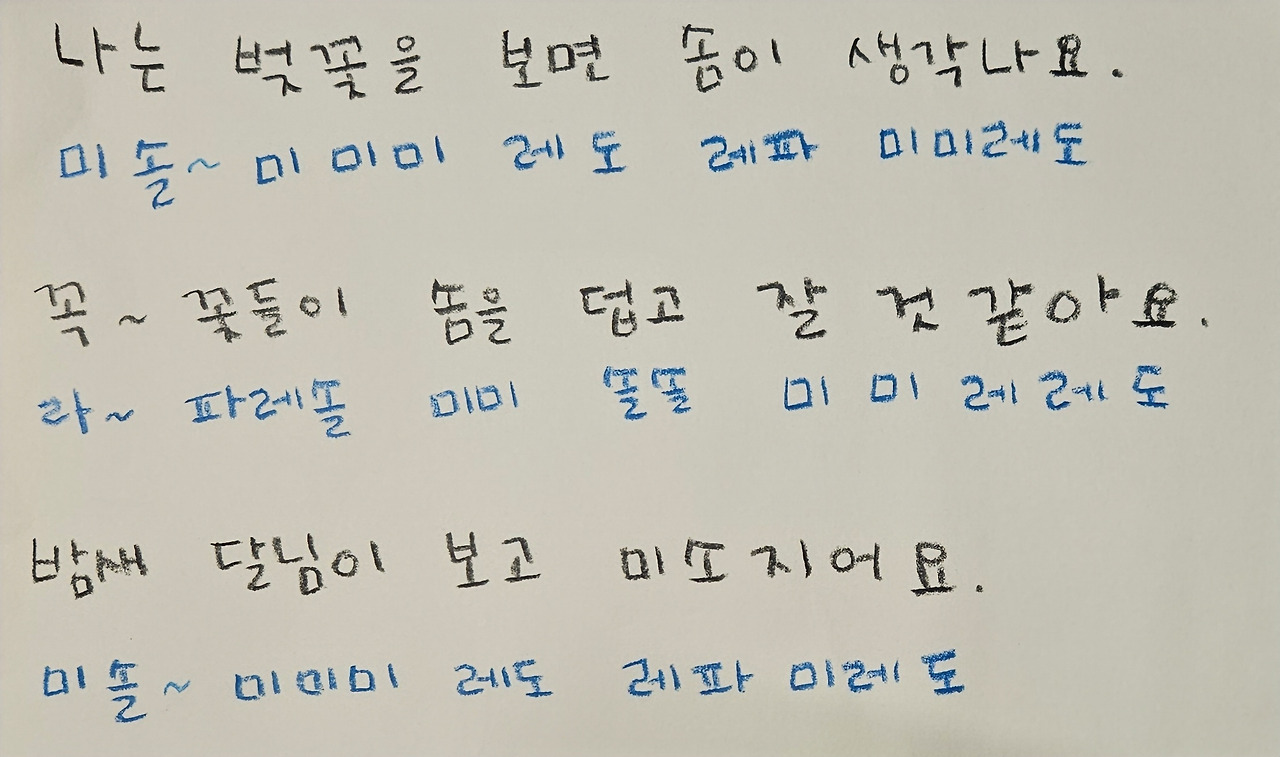 나는 벚꽃을 보면 솜이 생각나요.
미 솔~ 미 미미 레 도 레파 미미레도
꼭~ 꽃들이 솜을 덮고 잘 것 같아요.
라~ 파레솔 미미 쏠쏠 미 미 레 레레 도
밤새 달님이 보고 미소지어요.
미솔~ 미미미 레도 레파 미레 도